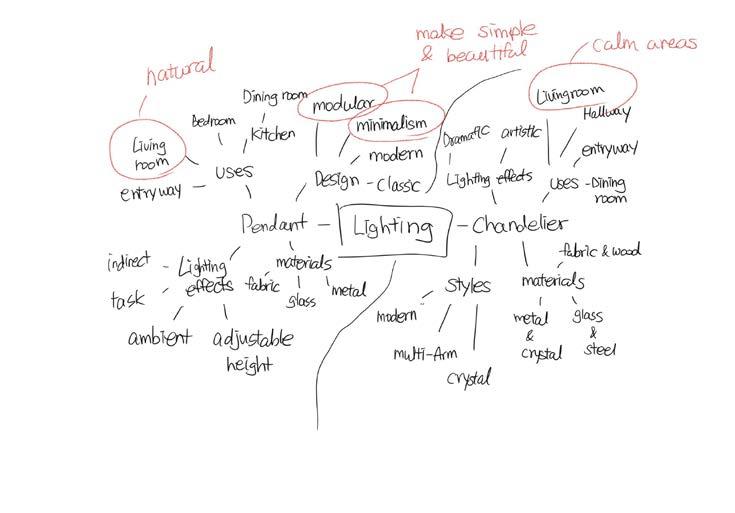 make simple
& beautiful
calm areas
natural
Dining room
modular
Livingroom
Bedroom
Kitchen
minimalism
Hallway
Living
room
Dramatic
artistic
modern
entryway
entryway
uses
Design - Classic
Lighting effects
uses - Dining
room
Pendant - Lighting - Chandelier
indirect - Lighting
effects
materials
fabric & wood
task
fabric
glass
metal
styles
materials
modern
metal
&
crystal
glass
&
steel
ambient
adjustable
height
multi-Arm
crystal